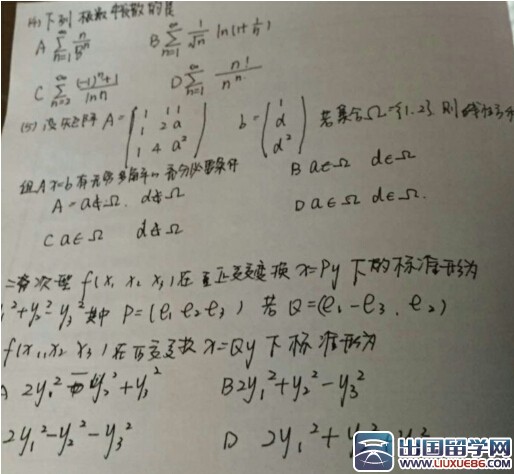 (4) 下列级数中发散的是
A ∑_{n=1}^{∞} n/8^n B ∑_{n=1}^{∞} 1/√n ln(1+1/n)
C ∑_{n=2}^{∞} ((-1)^n+1)/ln n D ∑_{n=1}^{∞} n!/n^n
(5) 设矩阵 A=(1 1 1; 1 2 a; 1 4 a²) b=(1; d; d²) 若集合Ω={1.2} 则线性方
组Ax=b有无穷多解的充分必要条件
A a∉Ω. d∉Ω B a∈Ω d∈Ω
C a∈Ω d∉Ω D a∈Ω d∈Ω.
二次型 f(x₁ x₂ x₃) 在正交变换 x=Py 下的标准形为
y₁²+y₂²-y₃² 其中 P=(e₁ e₂ e₃) 若 Q=(e₁ -e₃. e₂)
f(x₁,x₂ x₃) 在正交变换 x=Qy 下标准形为
A 2y₁² y₂²+y₃² B 2y₁²+y₂²-y₃²
2y₁²-y₂²-y₃² D 2y₁²+y
出国留学网
www.liuxue86.com